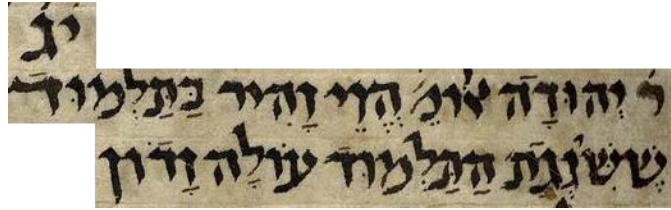 יג
ר׳ יְהוּדָה אוֹמֵ׳ הֱוֵי זָהִיר כַּתַּלְמוּד
שֶׁשִּׁגְגַת הַתַּלְמוּד עוֹלָה זָדוֹן